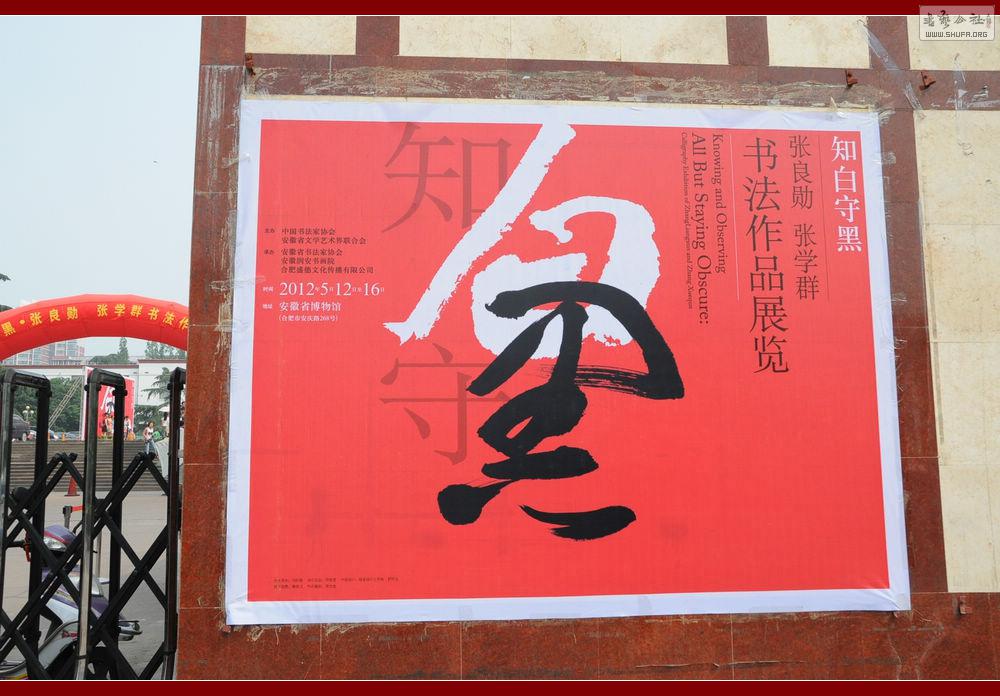 书法公社
WWW.SHUFA.ORG
知白守黑
张良勋 张学群
书法作品展览
Knowing and Observing
All But Staying Obscure:
Calligraphy Exhibition of Zhang Liangxun and Zhang Xuequn
知
白
守
黑
主办 中国书法家协会
安徽省文学艺术界联合会
承办 安徽省书法家协会
安徽润安书画院
合肥盛德文化传播有限公司
时间 2012年5月12日至16日
地址 安徽省博物馆
(合肥市安庆路268号)
黑·张良勋 张学群书法作